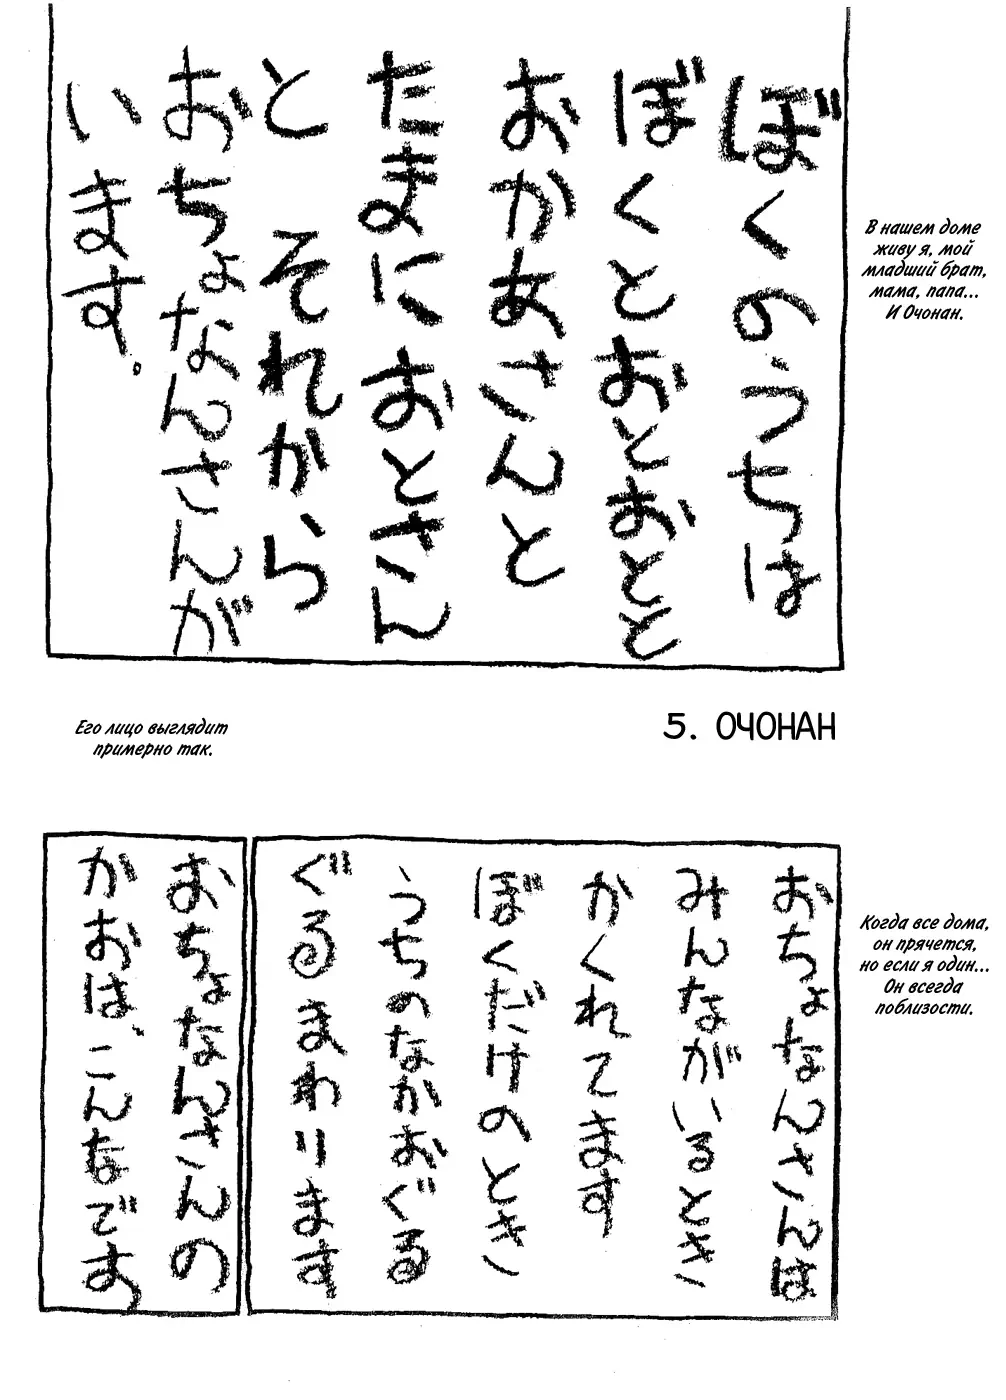 ぼくのうちは
ぼくとおとおとと
おかあさんと
たまにおとさん
と それから
おちょなんさんが
います。
В нашем доме
живу я, мой
младший брат,
мама, папа...
И Очонан.
5. ОЧОНАН
Его лицо выглядит
примерно так.
おちょなんさんは
みんながいるとき
かくれてます
ぼくだけのとき
うちのなかおぐる
ぐるまわります
Когда все дома,
он прячется,
но если я один...
Он всегда
поблизости.
おちょなんさんの
かおは、こんなです